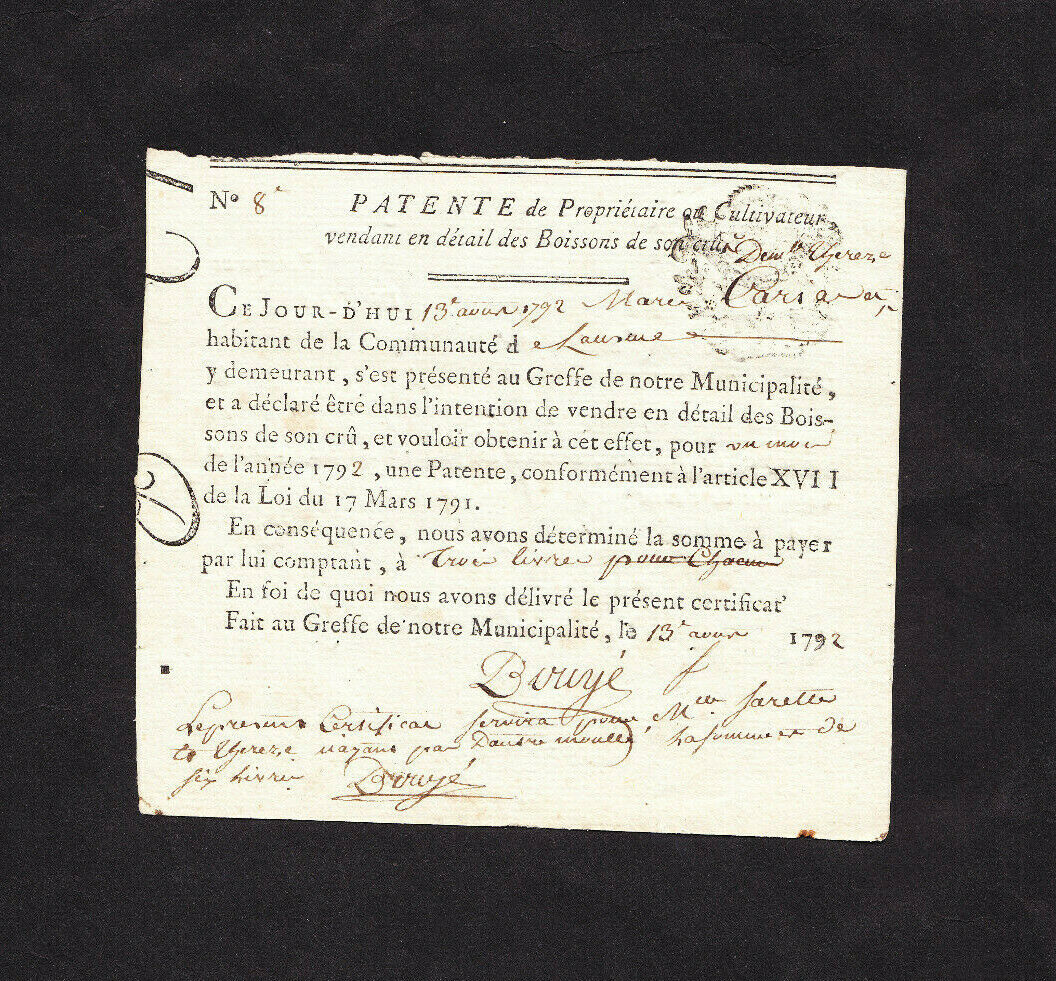 Nº 8 PATENTE de Propriétaire ou Cultivateur
vendant en détail des Boissons de son crû
Dem.lle thereze
CE JOUR-D'HUI 13e aout 1792 Marc
habitant de la Communauté de
y demeurant, s'est présenté au Greffe de notre Municipalité,
et a déclaré être dans l'intention de vendre en détail des Bois-
sons de son crû, et vouloir obtenir à cet effet, pour un moi
de l'année 1792, une Patente, conformément à l'article XVII
de la Loi du 17 Mars 1791.
En conséquence, nous avons déterminé la somme à payer
par lui comptant, à Troi livre pour Chacun
En foi de quoi nous avons délivré le présent certificat
Fait au Greffe de notre Municipalité, le 13e aout 1792
Bouyé
Le present Certificat servira pour
et thereze nayant par Dautre moulle La somme de
six livre Bouyé